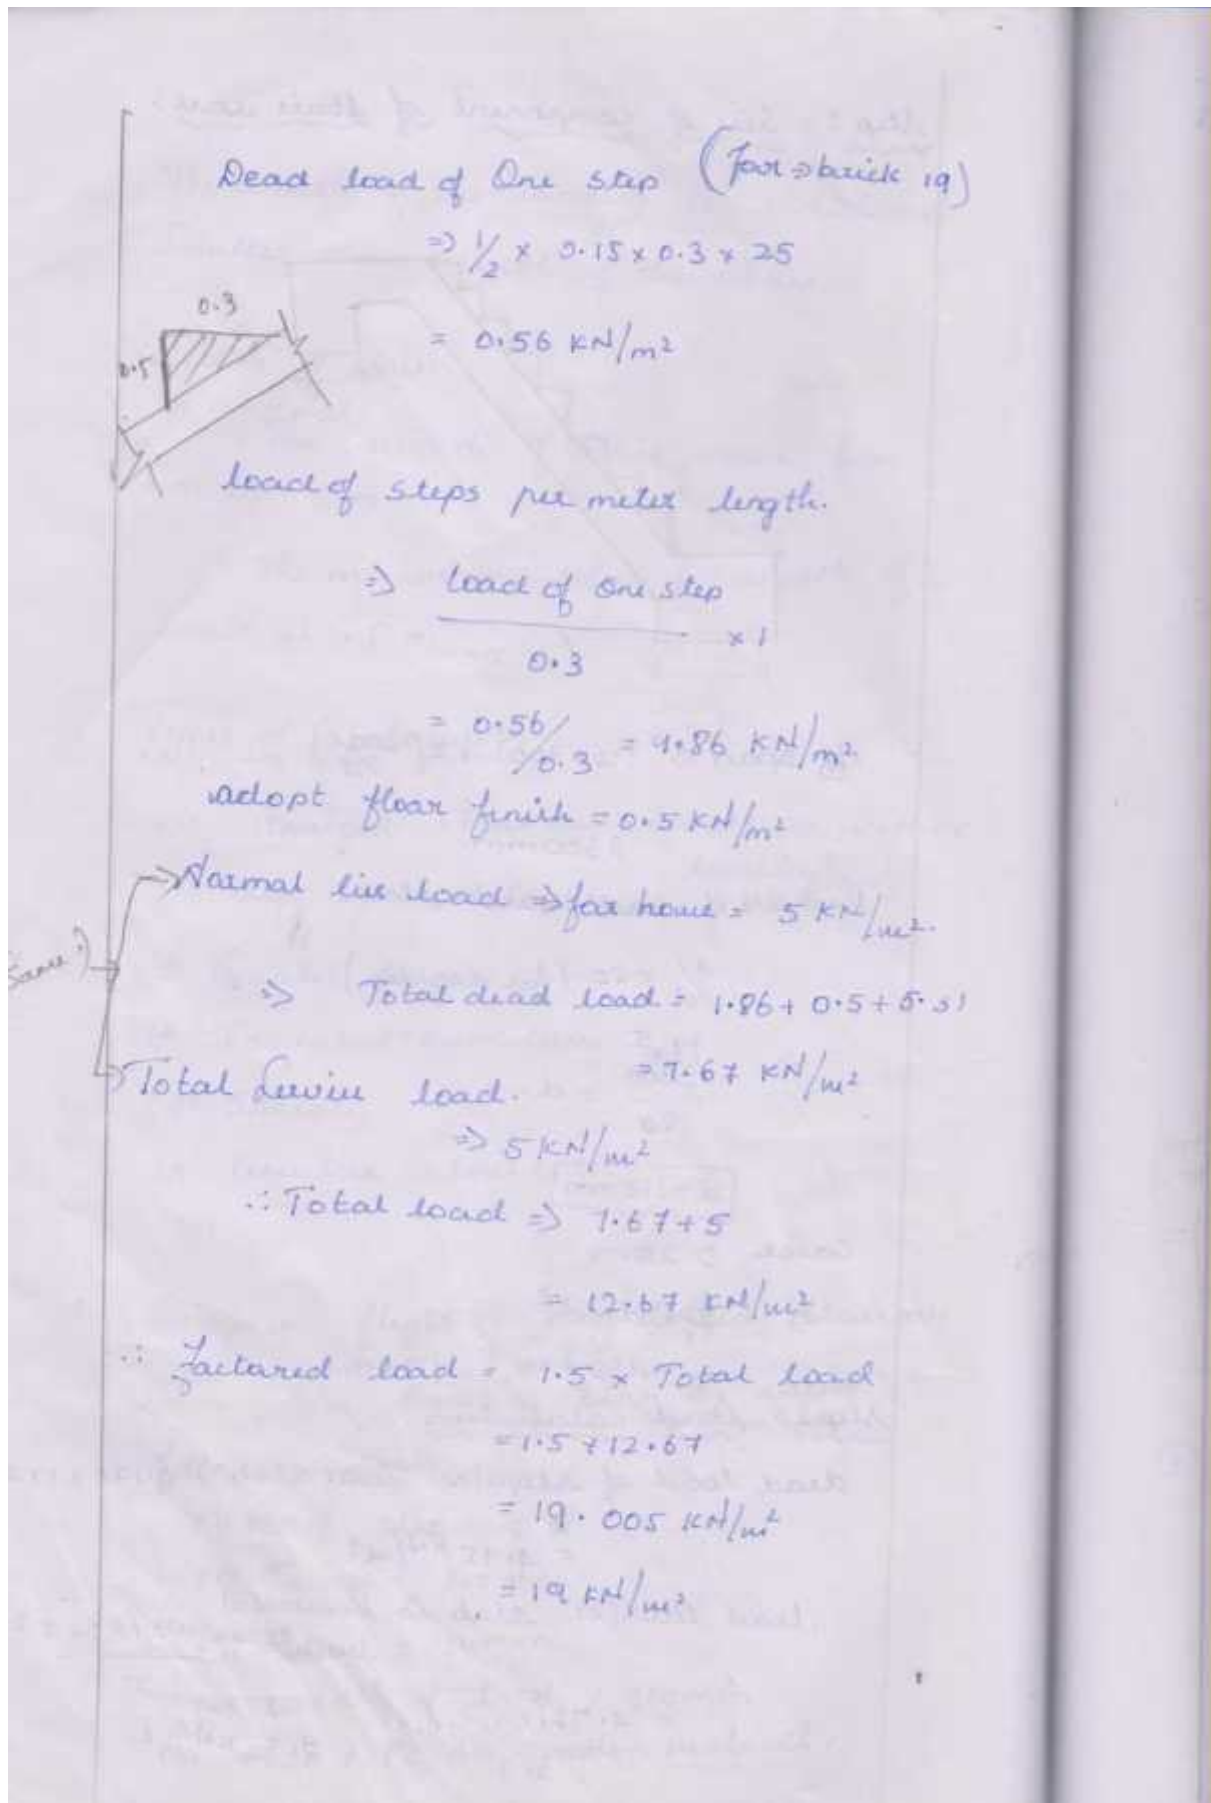 Dead load of One step (for ⇒ brick 19)
⇒ 1/2 × 0.15 × 0.3 × 25
0.3
= 0.56 KN/m²
0.5
load of steps per meter length.
⇒ load of one step
× 1
0.3
= 0.56/0.3 = 1.86 KN/m²
adopt floor finish = 0.5 KN/m²
⇒ Normal live load ⇒ for home = 5 KN/m².
same
⇒ Total dead load = 1.86 + 0.5 + 5.31
= 7.67 KN/m²
⇒ Total Service load.
⇒ 5 KN/m²
∴ Total load ⇒ 7.67 + 5
= 12.67 KN/m²
∴ factored load = 1.5 × Total load
= 1.5 × 12.67
= 19.005 KN/m²
= 19 KN/m²